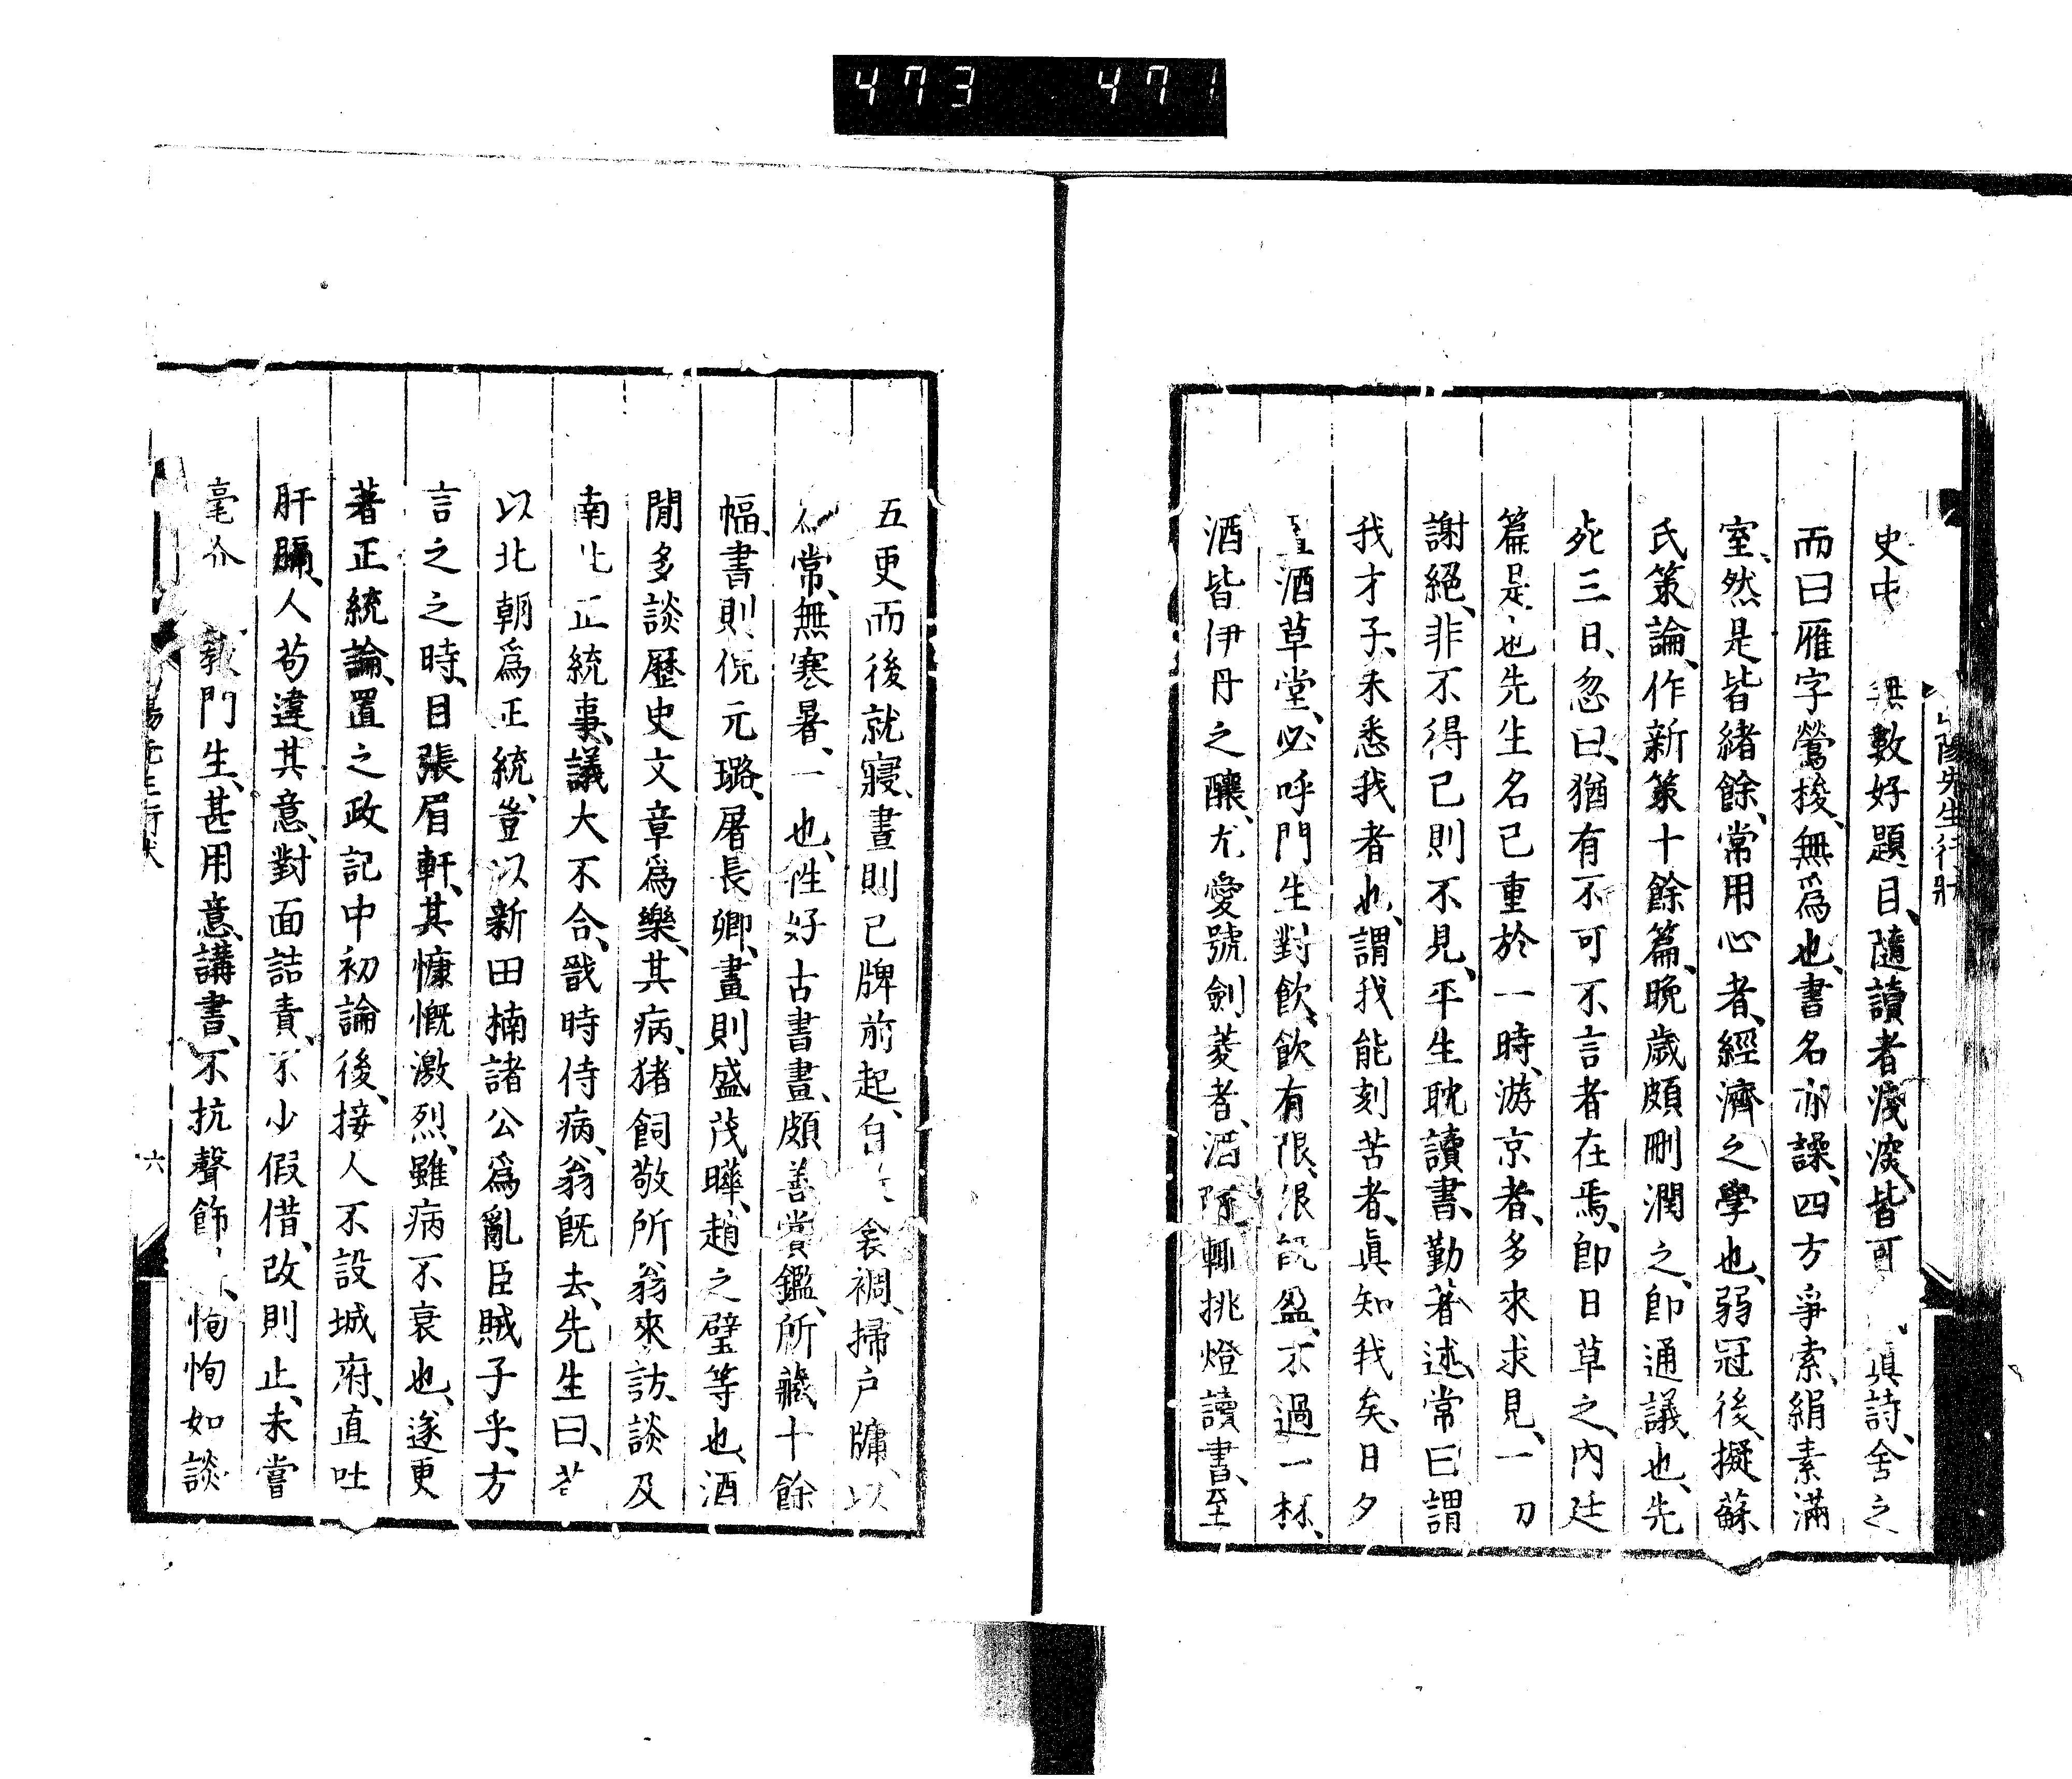 473 471
山陽先生行狀
史中 無數好題目、隨讀者淺深、皆可 眞詩、舍之
而曰雁字鶯梭、無爲也、書名亦譟、四方爭索、絹素滿
室、然是皆緒餘、常用心者、經濟之學也、弱冠後、擬蘇
氏策論、作新策十餘篇、晚歲頗刪潤之、卽通議也、先
死三日、忽曰、猶有不可不言者在焉、卽日草之、內廷
篇是也先生名已重於一時、游京者、多來求見、一切
謝絕、非不得已則不見、平生耽讀書、勤著述、常曰謂
我才子、未悉我者也、謂我能刻苦者、眞知我矣、日夕
置酒草堂、必呼門生對飮、飮有限、限旣盈、不過一杯、
酒皆伊丹之釀、尤愛號劍菱者、酒除輒挑燈讀書、至
五更而後就寢、晝則巳牌前起、自 衾裯、掃戶牖、以
爲常、無寒暑、一也、性好古書畫、頗善賞鑑、所藏十餘
幅、書則倪元璐、屠長卿、畫則盛茂曄、趙之璧等也、酒
閒多談歷史文章爲樂、其病、猪飼敬所翁來訪、談及
南北正統事、議大不合、戩時侍病、翁旣去、先生曰、若
以北朝爲正統、豈以新田楠諸公爲亂臣賊子乎、方
言之之時、目張眉軒、其慷慨激烈、雖病不衰也、遂更
著正統論、置之政記中初論後、接人不設城府、直吐
肝膈、人苟違其意、對面詰責、不少假借、改則止、未嘗
毫介 敎門生、甚用意、講書、不抗聲飾 、恂恂如談
陽先生行狀 六